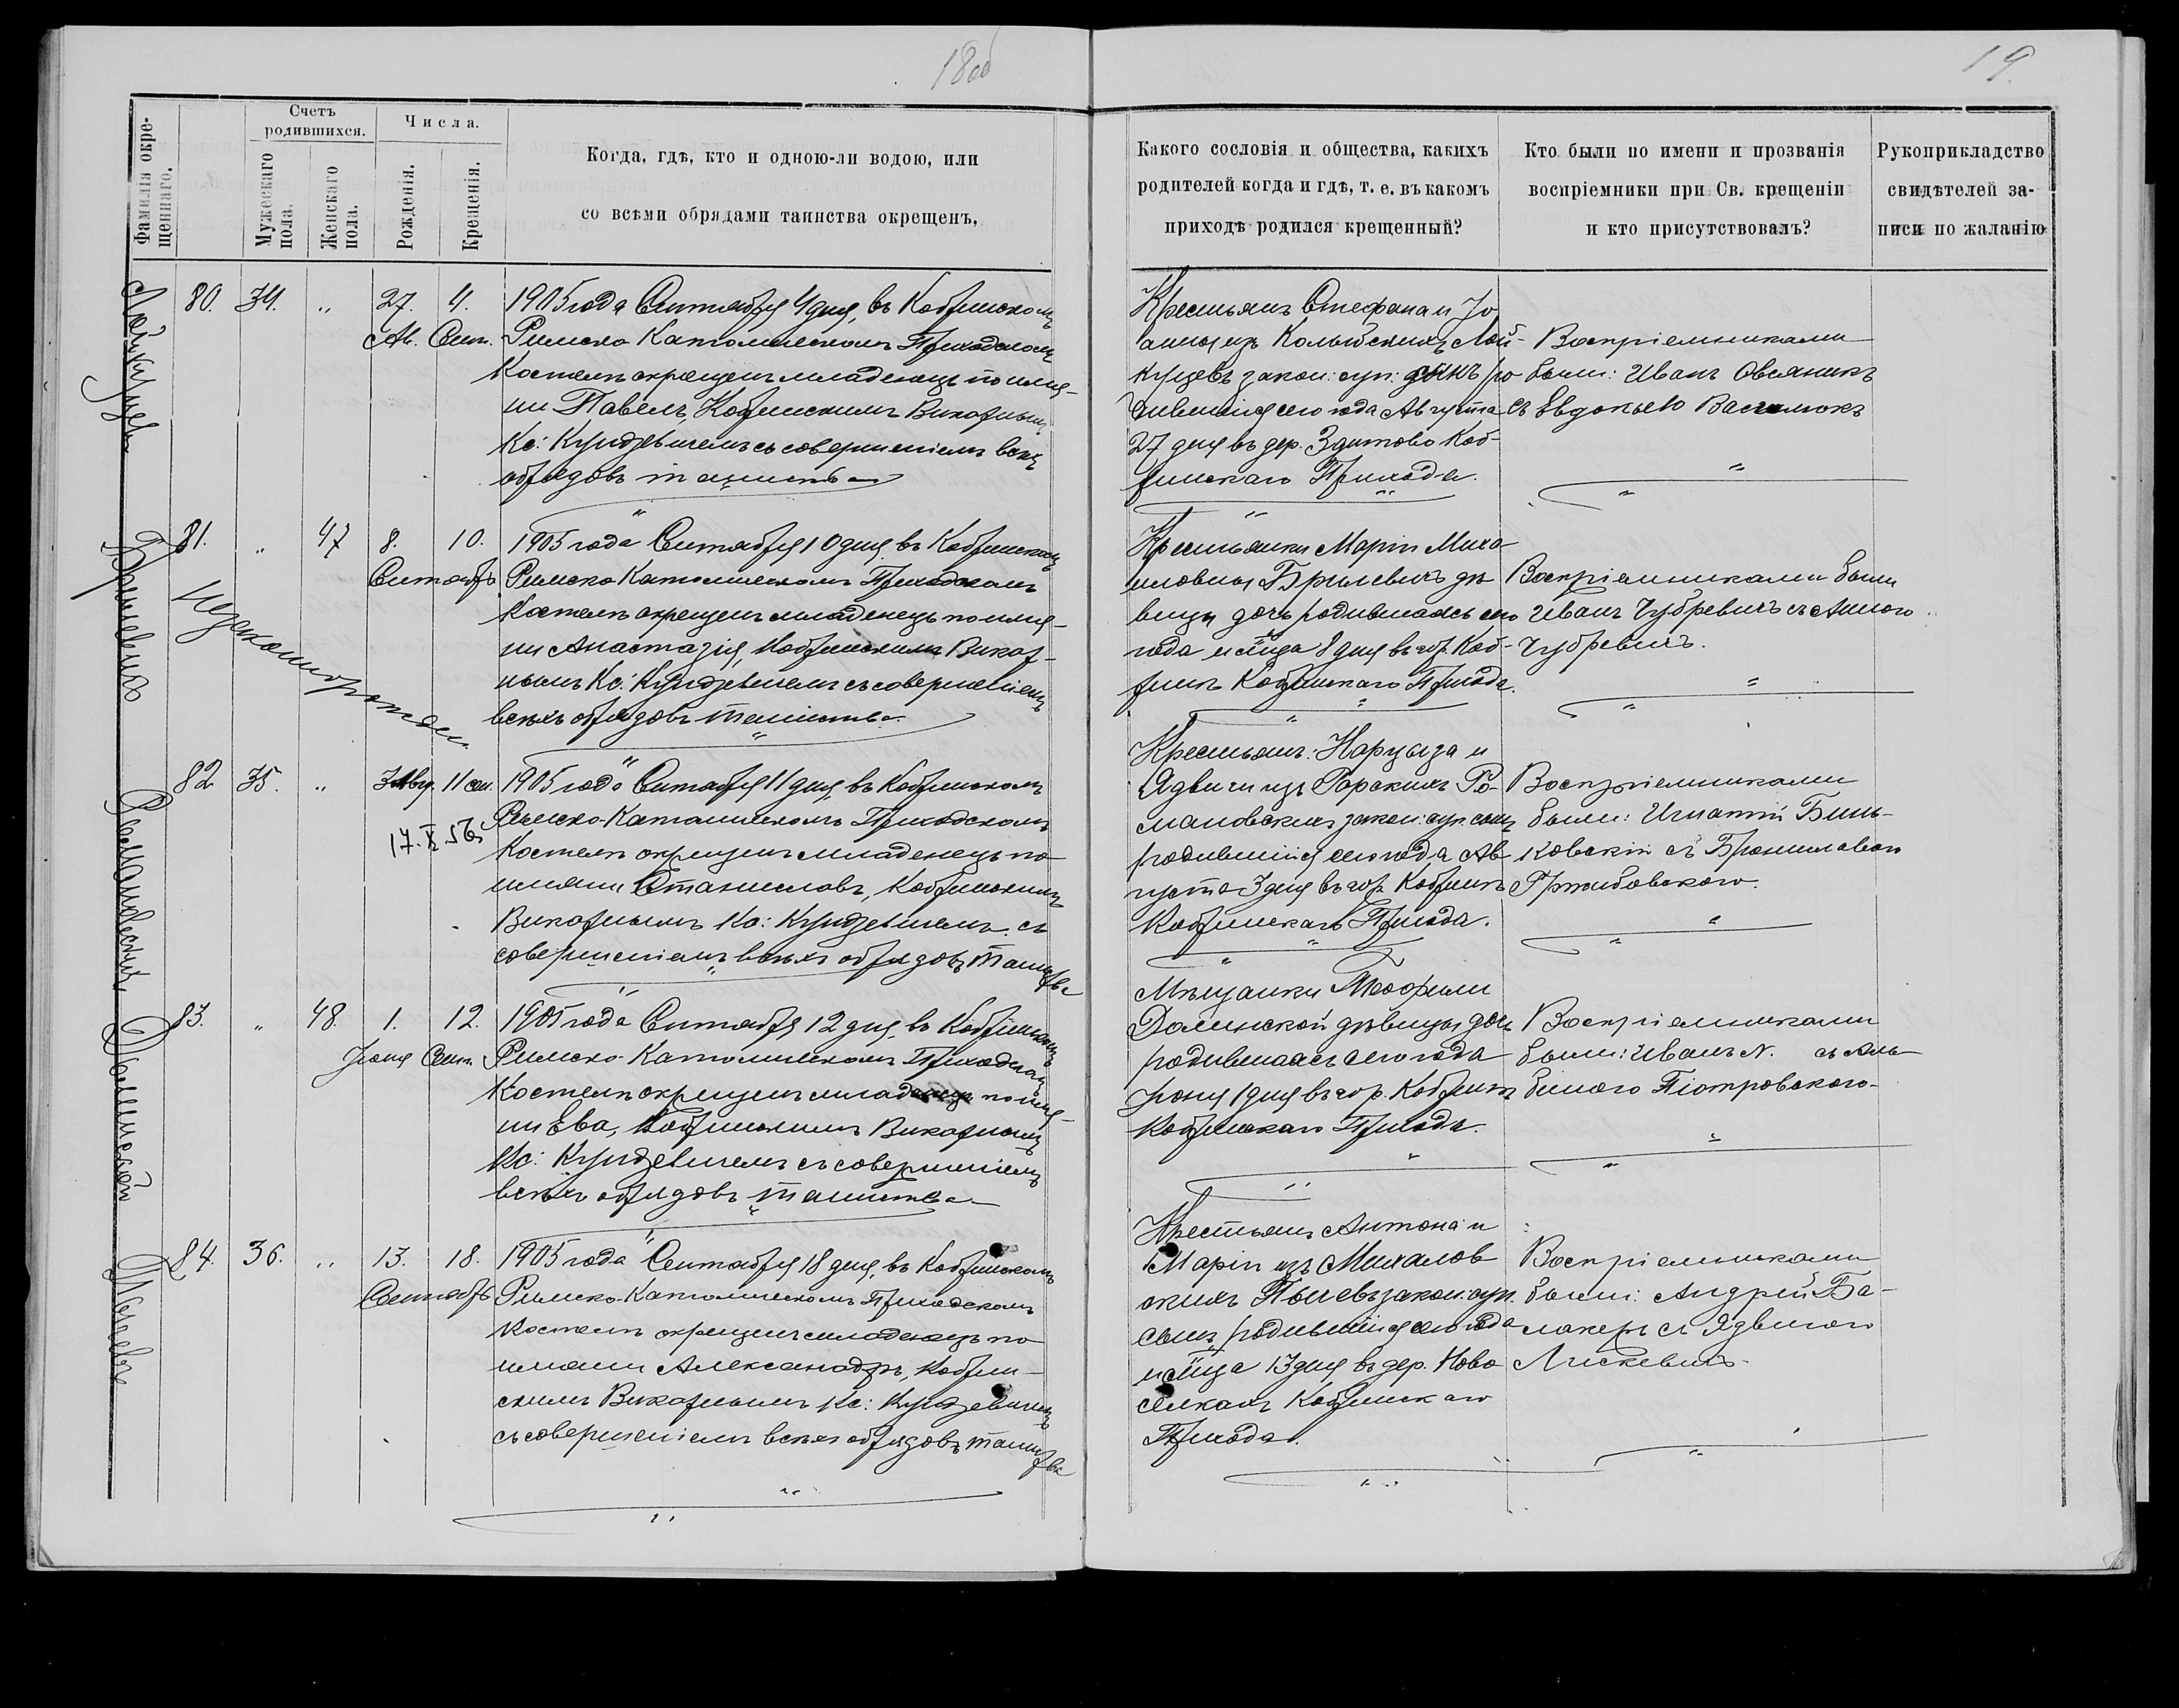 18об
19.
Фамилія окре-
щеннаго.
Счетъ
родившихся.
Мужескаго
пола.
Женскаго
пола.
Числа.
Рожденія.
Крещенія.
Когда, гдѣ, кто и одною-ли водою, или
со всѣми обрядами таинства окрещенъ,
Какого сословія и общества, какихъ
родителей когда и гдѣ, т. е. въ какомъ
приходѣ родился крещенный?
Кто были по имени и прозванія
воспріемники при Св. крещеніи
и кто присутствовалъ?
Рукоприкладство
свидѣтелей за-
писи по жаланію
80. 34. „ 27. 4.
Ав. Сент.
1905 года Сентября 4 дня, въ Кобринскомъ
Римско Католическомъ Приходскомъ
Костелѣ окрещенъ младенецъ по име-
ни Павелъ, Кобринскимъ Викарнымъ
Кс: Кундзевичемъ съ совершеніемъ всѣхъ
обрядовъ таинства
Крестьянъ Стефана и Іо
анны изъ Колыбскихъ Лой-
куцевъ закон: суп: сынъ ро
дившійся сего года Августа
27 дня въ дер. Здитово Коб-
ринскаго Прихода.
Воспріемниками
были: Иванъ Овсяникъ
съ Евдокьею Василюкъ
Брилевичъ
81. „ 47 8. 10.
Сентябрь
Незаконнорожден.
1905 года Сентября 10 дня, въ Кобринскомъ
Римско Католическомъ Приходскомъ
Костелѣ окрещенъ младенецъ по име-
ни Анастазія, Кобринскимъ Викар-
нымъ Кс: Кундзевичемъ съ совершеніемъ
всѣхъ обрядовъ таинства
Крестьянки Маріи Миха
иловны Брилевичъ дѣ
вицы дочь родившаяся сего
года м-ца 8 дня въ гор. Коб-
ринѣ Кобринскаго Прихода.
Воспріемниками были
Иванъ Чубревичъ съ Анною
Чубревичъ.
Романовскихъ
82 35. „ 3 Авг. 11 сен.
17. X. 56
1905 года Сентября 11 дня, въ Кобринскомъ
Римско-Католическомъ Приходскомъ
Костелѣ окрещенъ младенецъ по
имени Станиславъ, Кобринскимъ
Викарнымъ Кс: Кундзевичемъ съ
совершеніемъ всѣхъ обрядовъ таинства
Крестьянъ: Нарцыза и
Ядвиги изъ Горскихъ Ро-
мановскихъ закон: суп. сынъ
родившійся сего года Ав
густа 3 дня въ гор. Кобринѣ
Кобринскаго Прихода.
Воспріемниками
были: Игнатій Бинь-
ковскій съ Брониславою
Гржибовскою.
Долинской
83. „ 48. 1. 12.
Іюня Сент.
1905 года Сентября 12 дня, въ Кобринскомъ
Римско-Католическомъ Приходскомъ
Костелѣ окрещенъ младенецъ по име-
ни Ева, Кобринскимъ Викарнымъ
Кс: Кундзевичемъ съ совершеніемъ
всѣхъ обрядовъ таинства
Мѣщанки Теофили
Долинской дѣвицы дочь
родившаяся сего года
Іюня 1 дня въ гор. Кобринѣ
Кобринскаго Прихода.
Воспріемниками
были: Иванъ N. съ Аль
биною Піотровскою
84. 36. „ 13. 18.
Сентябрь
1905 года Сентября 18 дня, въ Кобринскомъ
Римско-Католическомъ Приходскомъ
Костелѣ окрещенъ младенецъ по
имени Александръ, Кобрин-
скимъ Викарнымъ Кс: Кундзевичемъ
съ совершеніемъ всѣхъ обрядовъ таинства
Крестьянъ Антона и
Маріи изъ Михалов
скихъ закон: суп.
сынъ, родившійся сего года
м-ца 13 дня въ дер. Ново
селкахъ Кобринскаго
Прихода.
Воспріемниками
были: Андрей Ба-
лакеръ съ Ядвигою
Лискевичъ